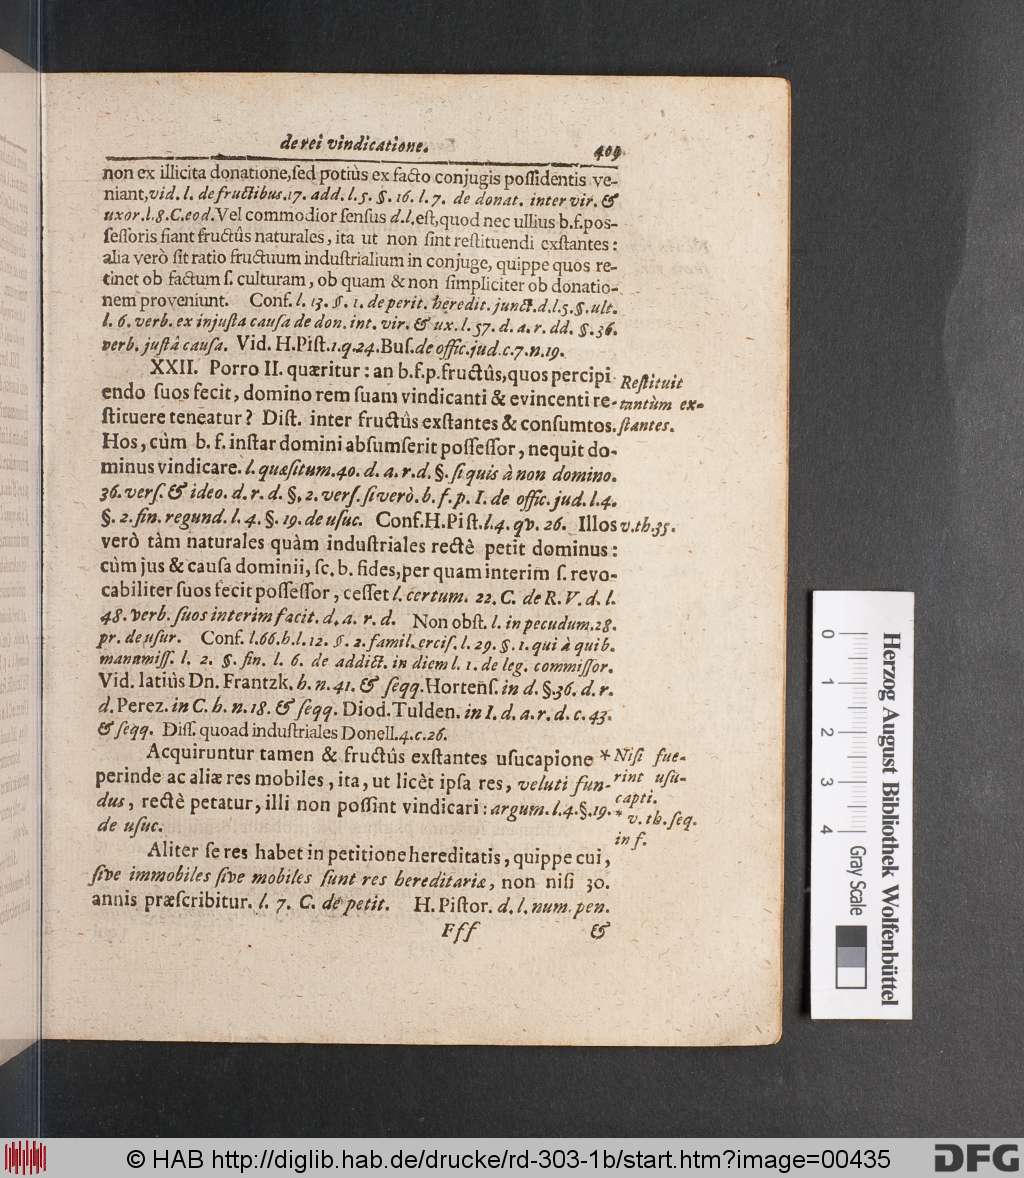 de rei vindicatione. 409
non ex illicita donatione, sed potiùs ex facto conjugis possidentis ve-
niant, vid. l. de fructibus. 17. add. l. 5. §. 16. l. 7. de donat. inter vir. &
uxor. l. 8. C. eod. Vel commodior sensus d. l. est, quod nec ullius b. f. pos-
sessoris fiant fructûs naturales, ita ut non sint restituendi exstantes:
alia verò sit ratio fructuum industrialium in conjuge, quippe quos re-
tinet ob factum s. culturam, ob quam & non simpliciter ob donatio-
nem proveniunt. Conf. l. 13. §. 1. de perit. heredit. junct. d. l. 5. §. ult.
l. 6. verb. ex injusta causa de don. int. vir. & ux. l. 57. d. a. r. dd. §. 36.
verb. justâ causa. Vid. H. Pist. 1. q. 24. Bus. de offic. jud. c. 7. n. 19.
XXII. Porro II. quæritur: an b. f. p. fructûs, quos percipi
endo suos fecit, domino rem suam vindicanti & evincenti re-
stituere teneatur? Dist. inter fructûs exstantes & consumtos.
Restituit
tantùm ex-
stantes.
Hos, cùm b. f. instar domini absumserit possessor, nequit do-
minus vindicare. l. quæsitum. 40. d. a. r. d. §. si quis à non domino.
36. vers. & ideo. d. r. d. §. 2. vers. si verò. b. f. p. I. de offic. jud. l. 4.
§. 2. fin. regund. l. 4. §. 19. de usuc. Conf. H. Pist. l. 4. qv. 26. Illos
v. th. 35.
verò tàm naturales quàm industriales rectè petit dominus:
cùm jus & causa dominii, sc. b. fides, per quam interim s. revo-
cabiliter suos fecit possessor, cesset l. certum. 22. C. de R. V. d. l.
48. verb. suos interim facit. d. a. r. d. Non obst. l. in pecudum. 28.
pr. de usur. Conf. l. 66. h. l. 12. §. 2. famil. ercis. l. 29. §. 1. qui à quib.
manumiss. l. 2. §. fin. l. 6. de addict. in diem l. 1. de leg. commissor.
Vid. latiùs Dn. Frantzk. h. n. 41. & seqq. Hortens. in d. §. 36. d. r.
d. Perez. in C. h. n. 18. & seqq. Diod. Tulden. in I. d. a. r. d. c. 43.
& seqq. Diss. quoad industriales Donell. 4. c. 26.
Acquiruntur tamen & fructûs exstantes usucapione *
perinde ac aliæ res mobiles, ita, ut licèt ipsa res, veluti fun-
dus, rectè petatur, illi non possint vindicari: argum. l. 4. §. 19.
de usuc.
Nisi fue-
rint usu-
capti.
* v. th. seq.
in f.
Aliter se res habet in petitione hereditatis, quippe cui,
sive immobiles sive mobiles sunt res hereditariæ, non nisi 30.
annis præscribitur. l. 7. C. de petit. H. Pistor. d. l. num. pen.
Fff &
0 1 2 3 4
Gray Scale
Herzog August Bibliothek Wolfenbüttel
© HAB http://diglib.hab.de/drucke/rd-303-1b/start.htm?image=00435
DFG